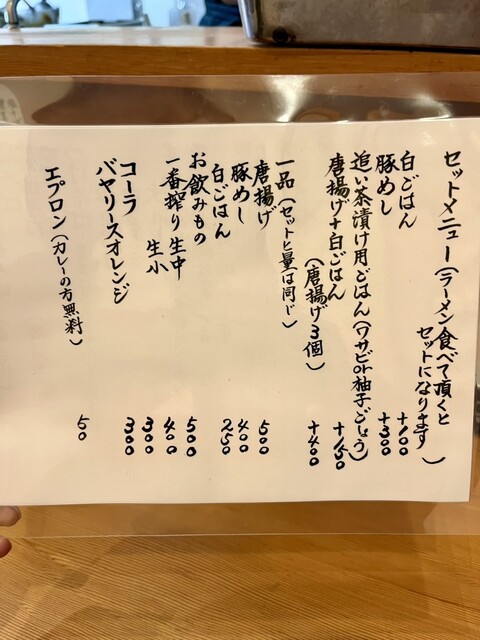 セットメニュー(ラーメン食べて頂くと
セットになります)
白ごはん +100
豚めし +300
追い茶漬け用ごはん(ワサビor柚子ごしょう) +150
唐揚げ+白ごはん
(唐揚げ3個) +400
一品(セットと量は同じ)
唐揚げ 500
豚めし 400
白ごはん 250
お飲みもの
一番搾り 生中 500
生小 400
コーラ 300
バヤリースオレンジ 300
エプロン(カレーの方無料) 50